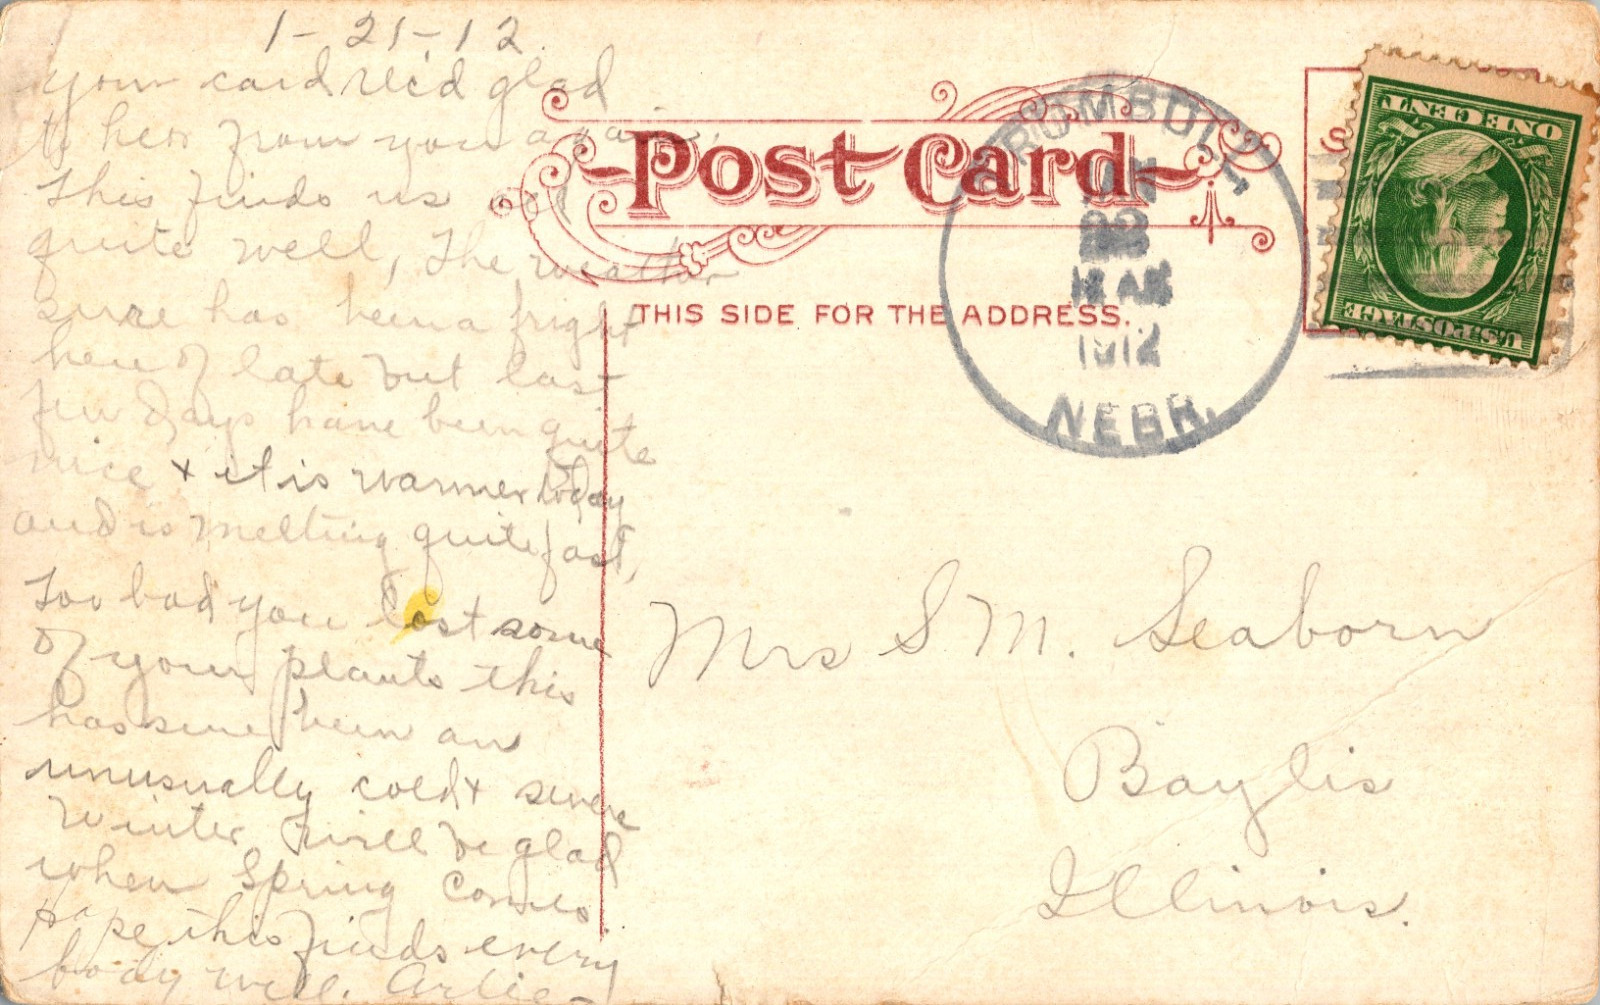 1-21-12.
your card rec'd glad
to hear from you again,
this finds us all
quite well, The weather
sure has been a fright
here of late but last
few days have been quite
nice + it is warmer today
and is melting quite fast,
Too bad you lost some
of your plants this
has sure been an
unusually cold + severe
winter, will be glad
when Spring comes
hope this finds every
body well. Arlie-
Post Card
THIS SIDE FOR THE ADDRESS.
HUMBOLDT
JAN
22
12 AM
1912
NEBR.
U.S. POSTAGE
ONE CENT
Mrs S. M. Seaborn
Baylis
Illinois.